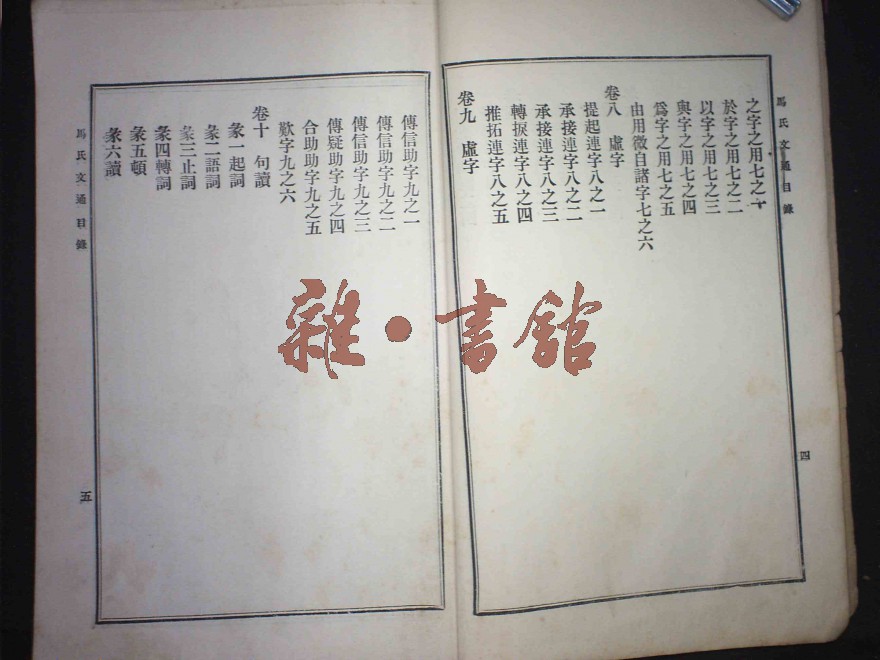 馬氏文通目錄
之字之用七之一
於字之用七之二
以字之用七之三
與字之用七之四
爲字之用七之五
由用微自諸字七之六
卷八 虛字
提起連字八之一
承接連字八之二
承接連字八之三
轉捩連字八之四
推拓連字八之五
卷九 虛字
四
傳信助字九之一
傳信助字九之二
傳信助字九之三
傳疑助字九之四
合助助字九之五
歎字九之六
卷十 句讀
彖一起詞
彖二語詞
彖三止詞
彖四轉詞
彖五頓
彖六讀
馬氏文通目錄
五
雜·書館